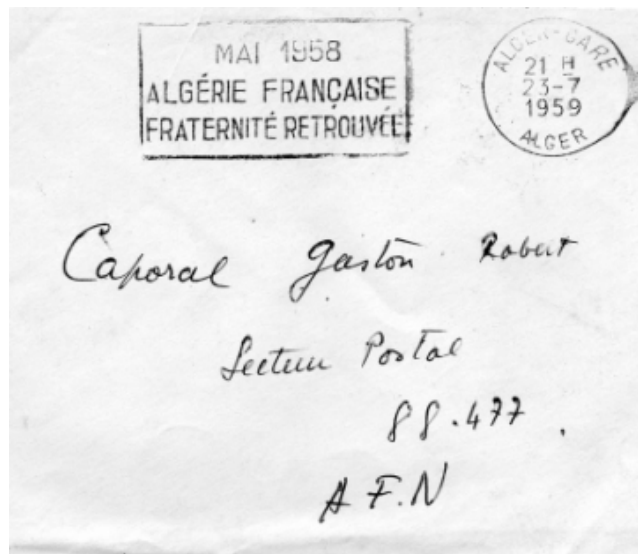 MAI 1958
ALGÉRIE FRANÇAISE
FRATERNITÉ RETROUVÉE
ALGER-GARE
21 H
23-7
1959
ALGER
Caporal Gaston Robert
Secteur Postal
88.477
A F.N